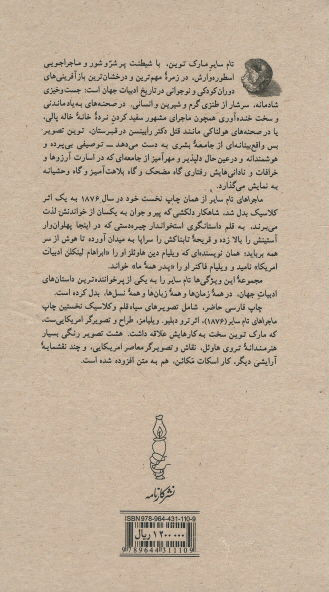 تام سایر مارک توین، با شیطنت پر شرّ و شور و ماجراجویی
اسطوره‌وارش، در زمرهٔ مهم‌ترین و درخشان‌ترین بازآفرینی‌های
دوران کودکی و نوجوانی در تاریخ ادبیات جهان است: جست‌وخیزی
شادمانه، سرشار از طنزی گرم و شیرین و انسانی. در صحنه‌های به‌یادماندنی
و سخت خنده‌آوری همچون ماجرای مشهور سفید کردن نردهٔ خانهٔ خاله پالی،
یا در صحنه‌های هولناکی مانند قتل دکتر رابینسن در قبرستان، توین تصویر
بس واقع‌بینانه‌ای از جامعهٔ بشری به دست می‌دهد ــ توصیفی بی‌پرده و
هوشمندانه و در عین حال دلپذیر و مهرآمیز از جامعه‌ای که در اسارت آرزوها و
خرافات و نادانی‌هایش رفتاری گاه مضحک و گاه بلاهت‌آمیز و گاه وحشیانه
به نمایش می‌گذارد.
ماجراهای تام سایر از همان چاپ نخست خود در سال ۱۸۷۶ به یک اثر
کلاسیک بدل شد، شاهکار دلکشی که پیر و جوان به یکسان از خواندنش لذت
می‌برند، به قلم داستانگوی استخواندار چیره‌دستی که در اینجا پهلوان‌وار
آستینش را بالا زده و قریحهٔ تابناکش را سراپا به میدان آورده تا هوش از سر
همه برباید؛ همان نویسنده‌ای که ویلیام دین هاولز او را «ابراهام لینکلن ادبیات
امریکا» نامید و ویلیام فاکنر او را «پدر همهٔ ما» خواند.
مجموعهٔ این ویژگی‌ها تام سایر را به یکی از پرخواننده‌ترین داستان‌های
ادبیات جهان، در همهٔ زمان‌ها و همهٔ زبان‌ها و همهٔ نسل‌ها، بدل کرده است.
چاپ فارسی حاضر، شامل تصویرهای سیاه‌قلم و کلاسیک نخستین چاپ
ماجراهای تام سایر (۱۸۷۶)، اثر ترو دبلیو. ویلیامز، طراح و تصویرگر امریکایی‌ست،
که مارک توین سخت به کارهایش علاقه داشت. هشت تصویر رنگی بسیار
هنرمندانهٔ تروی هاوئل، نقاش و تصویرگر معاصر امریکایی، و چند نقشمایهٔ
آرایشی دیگر، کار اسکات مَکائن، هم به متن افزوده شده است.
نشر کارنامه
ISBN 978-964-431-110-9
۱۲۰۰۰۰۰ ریال
9 789644 311109